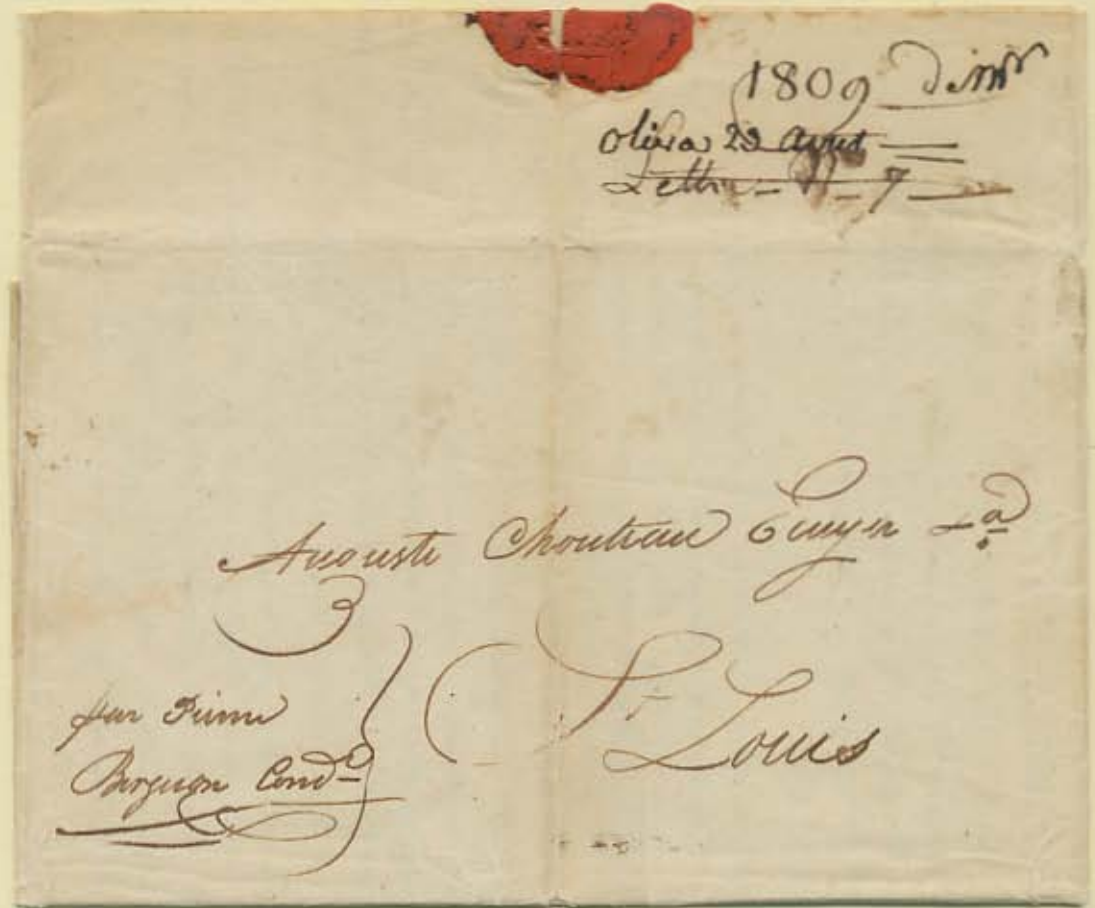 1809
Olive 22 août
Lettre - 7
Auguste Chouteau Ecuyer à
St Louis
par Pierre
Bergeron Condr